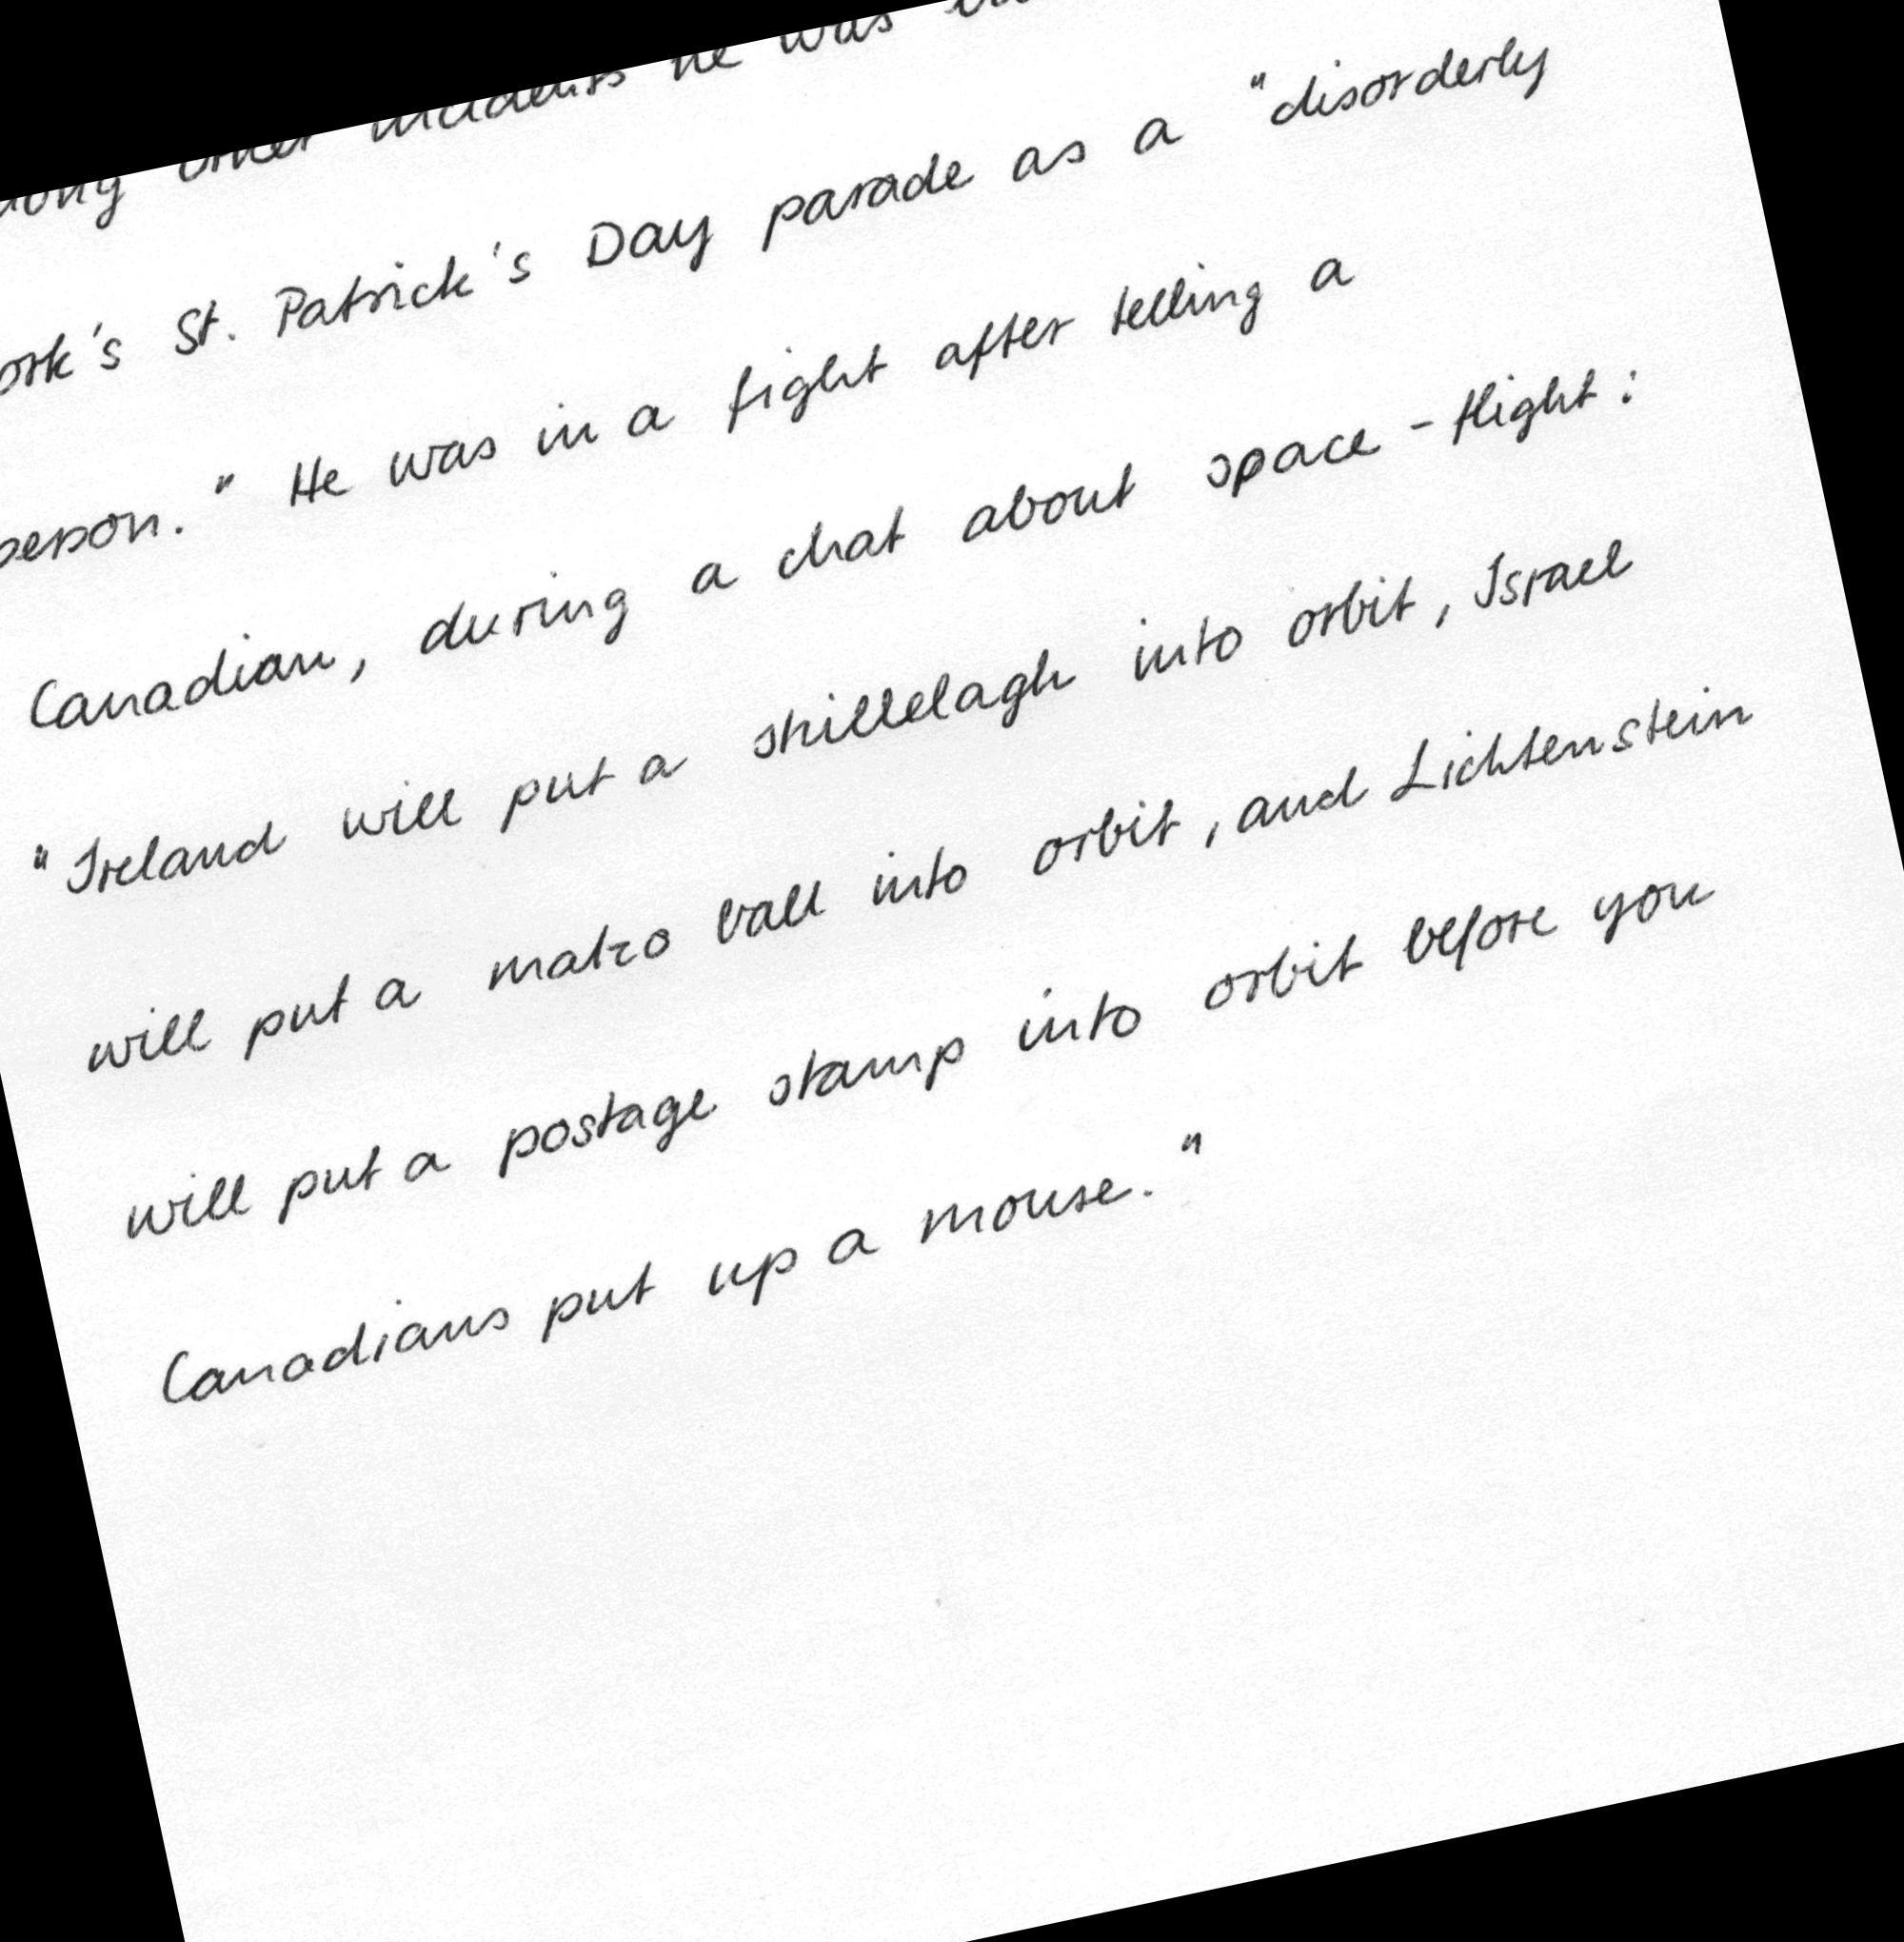 other incidents he was
St. Patrick's Day parade as a "disorderly
person." He was in a fight after telling a
Canadian, during a chat about space-flight:
"Ireland will put a shillelagh into orbit, Israel
will put a matzo ball into orbit, and Lichtenstein
will put a postage stamp into orbit before you
Canadians put up a mouse."